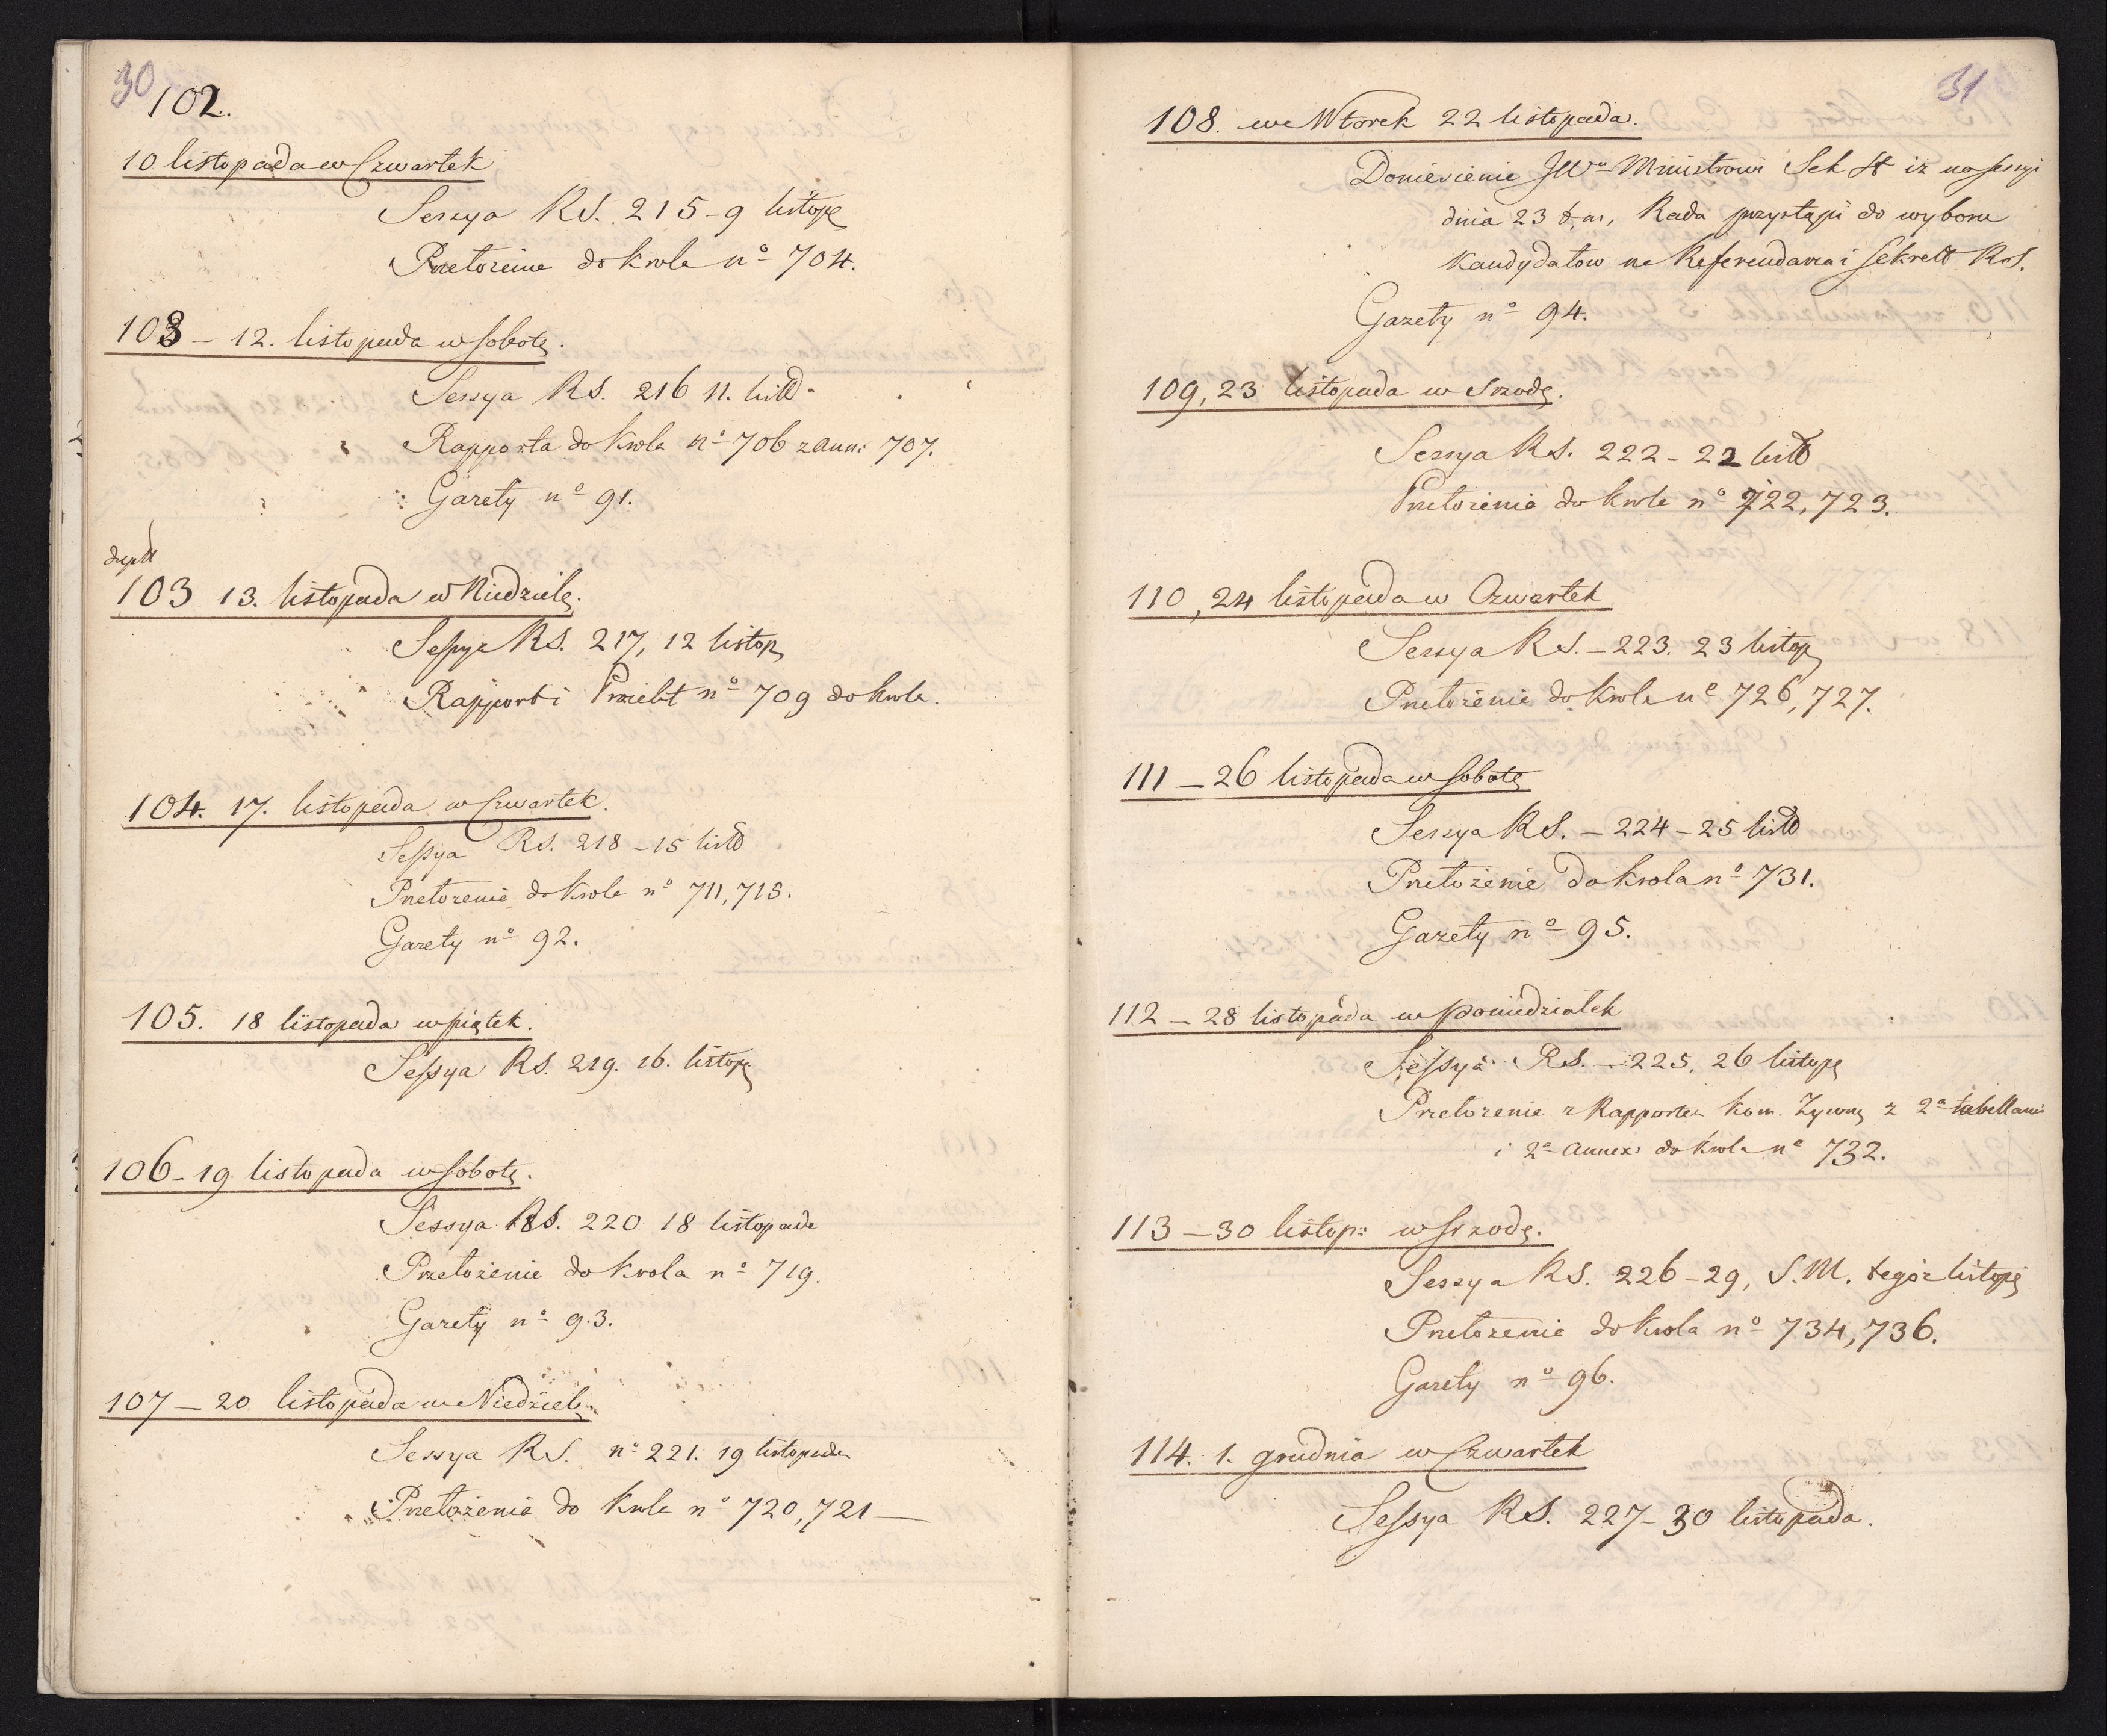 30
102.
10 listopada w Czwartek
Sessya RS. 215 - 9 listop
Przełożenie do krola nº 704.
103 - 12. listopada w Sobotę.
Sessya RS. 216 11. list
Rapporta do Krola nº 706 z ann: 707.
Gazety nº 91.
dupl
103 13. listopada w Niedzielę.
Sessya RS. 217, 12 listop
Rapport i Proiekt nº 709 do krola.
104. 17. listopada w Czwartek.
Sessya RS. 218 - 15 list
Przełozenie do krola nº 711, 715.
Gazety nº 92.
105. 18 listopada w piątek.
Sessya RS. 219. 16. listop
106 - 19 listopada w Sobotę.
Sessya RS. 220 18 listopada
Przełożenie do krola nº 719.
Gazety nº 93.
107 - 20 listopada w Niedzielę
Sessya RS. nº 221. 19 listopada
Przełożenie do krola nº 720, 721 —
31
108. we Wtorek 22 listopada.
Doniesienie JWu Ministrowi Sek St iż na sessyi
dnia 23 t, m, Rada przystąpi do wyboru
kandydatow na Referendarza i Sekret RS.
Gazety nº 94.
109, 23 listopada w Srzodę.
Sessya RS. 222 - 22 list
Przełozenie do krola nº 722, 723.
110, 24 listopada w Czwartek
Sessya RS. - 223. 23 listop
Przełożenie do Krola nº 726, 727.
111 - 26 listopada w Sobotę
Sessya RS. - 224 - 25 list
Przełożenie do krola nº 731.
Gazety nº 95.
112 - 28 listopada w Poniedziałek
Sessya RS. - 225, 26 listop
Przełozenie z Rapportem Kom. Zywn z 2a tabellami
i 2a annex: do krola nº 732.
113 - 30 listop: w Srzodę.
Sessya RS. 226 - 29, S. M. tegoż listop
Przełozenie do krola nº 734, 736.
Gazety nº 96.
114. 1. grudnia w Czwartek
Sessya RS. 227 - 30 listopada.